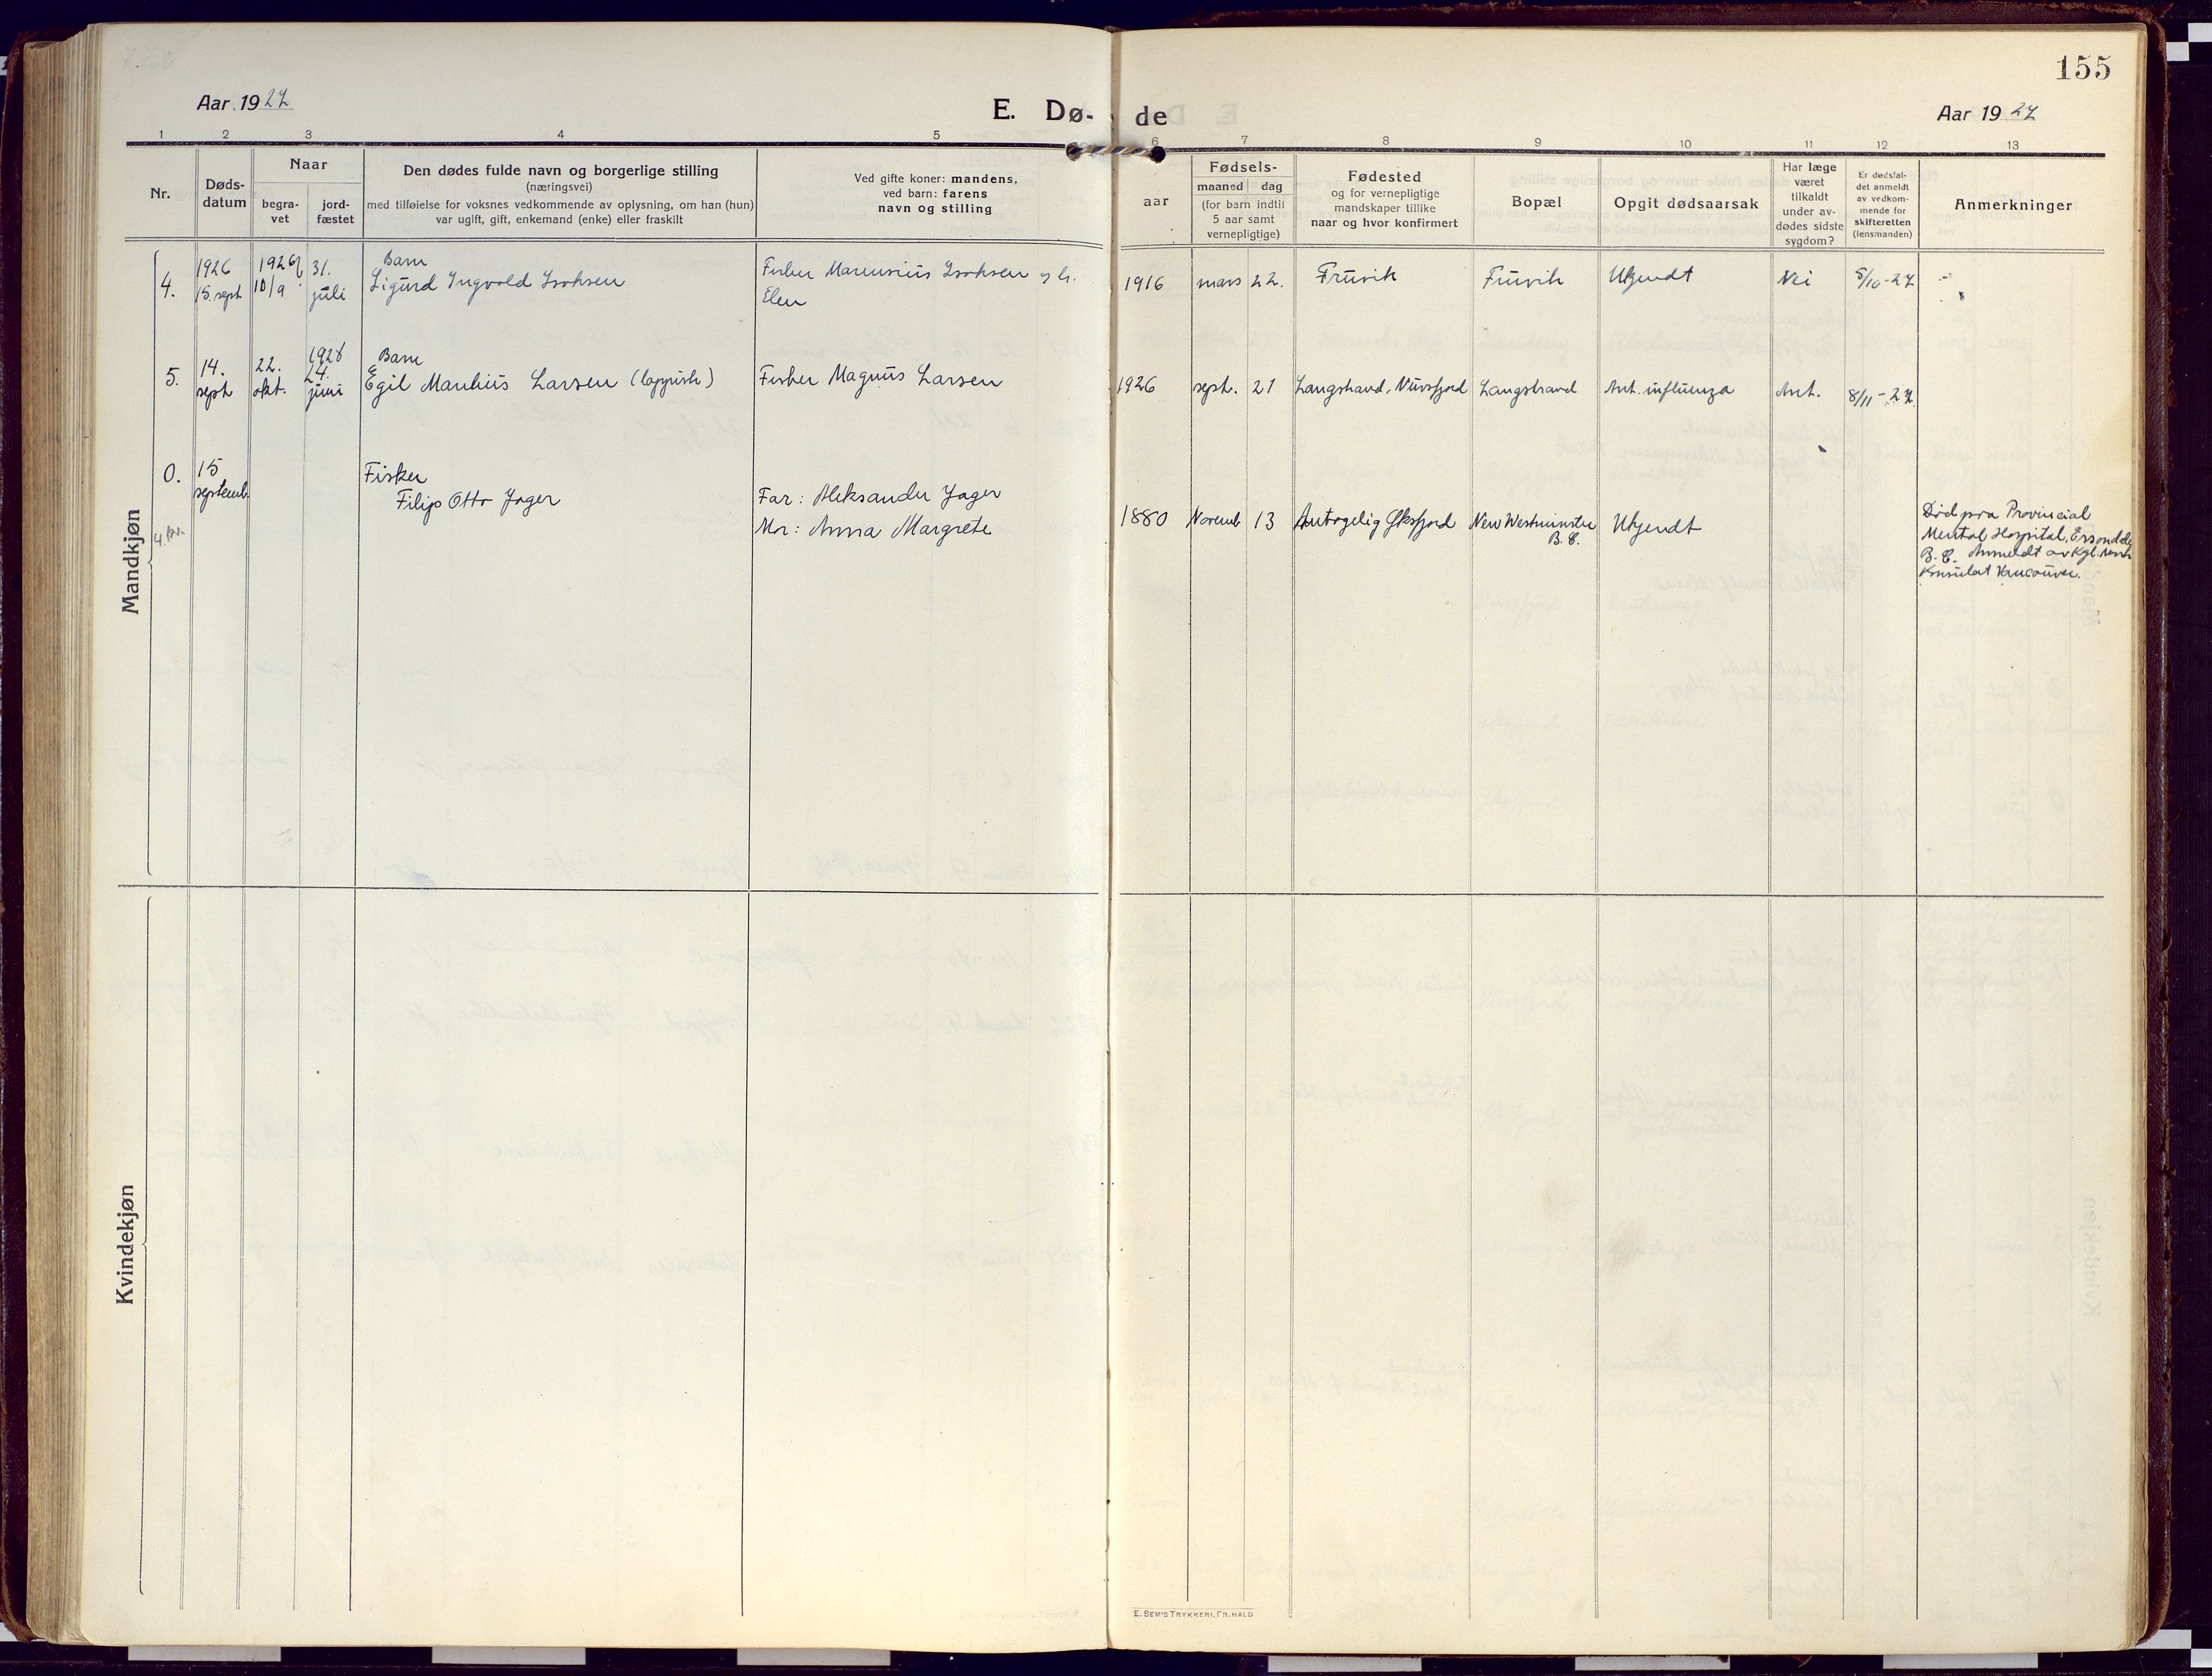 155
Aar 1927
E. Dø-
de
Aar 1927
1 2 3 4 5 6 7 8 9 10 11 12 13
Nr.
Døds-
datum
Naar
begra-
vet
jord-
fæstet
Den dødes fulde navn og borgerlige stilling
(næringsvei)
med tilføielse for voksnes vedkommende av oplysning, om han (hun)
var ugift, gift, enkemand (enke) eller fraskilt
Ved gifte koner: mandens,
ved barn: farens
navn og stilling
aar
Fødsels-
maaned dag
(for barn indtil
5 aar samt
vernepligtige)
Fødested
og for vernepligtige
mandskaper tillike
naar og hvor konfirmert
Bopæl
Opgit dødsaarsak
Har læge
været
tilkaldt
under av-
dødes sidste
sygdom?
Er dødsfal-
det anmeldt
av vedkom-
mende for
skifteretten
(lensmanden)
Anmerkninger
Mandkjøn
4.
1926
15. sept
31.
juli
Barn
Sigurd Ingvald Isaksen
Fisker Marensius Isaksen og h.
Elen
1916
mars 22.
Fruvik
Fruvik
Ukjendt
Nei
5/10-27
5.
14.
sept
22.
okt.
1928
24.
juni
Barn
Egil Manhius Larsen (lappisk)
Fisker Magnus Larsen
1926
sept. 21
Langstrand, Nuvsfjord
Langstrand
Ant. influenza
Ant.
8/11-27.
0.
15
septemb.
Fisker
Filip Otto Jager
Far: Aleksander Jager
Mor: Anna Margrete
1880
Novemb 13
Antagelig Øksfjord
New Westminster
B.C.
Ukjendt
Død paa Provincial
Mental Hospital, Essondale
B.C. Anmeldt av Kgl. norsk
Konsulat Vancouver.
Kvindekjøn
E. SEM'S TRYKKERI, FR. HALD